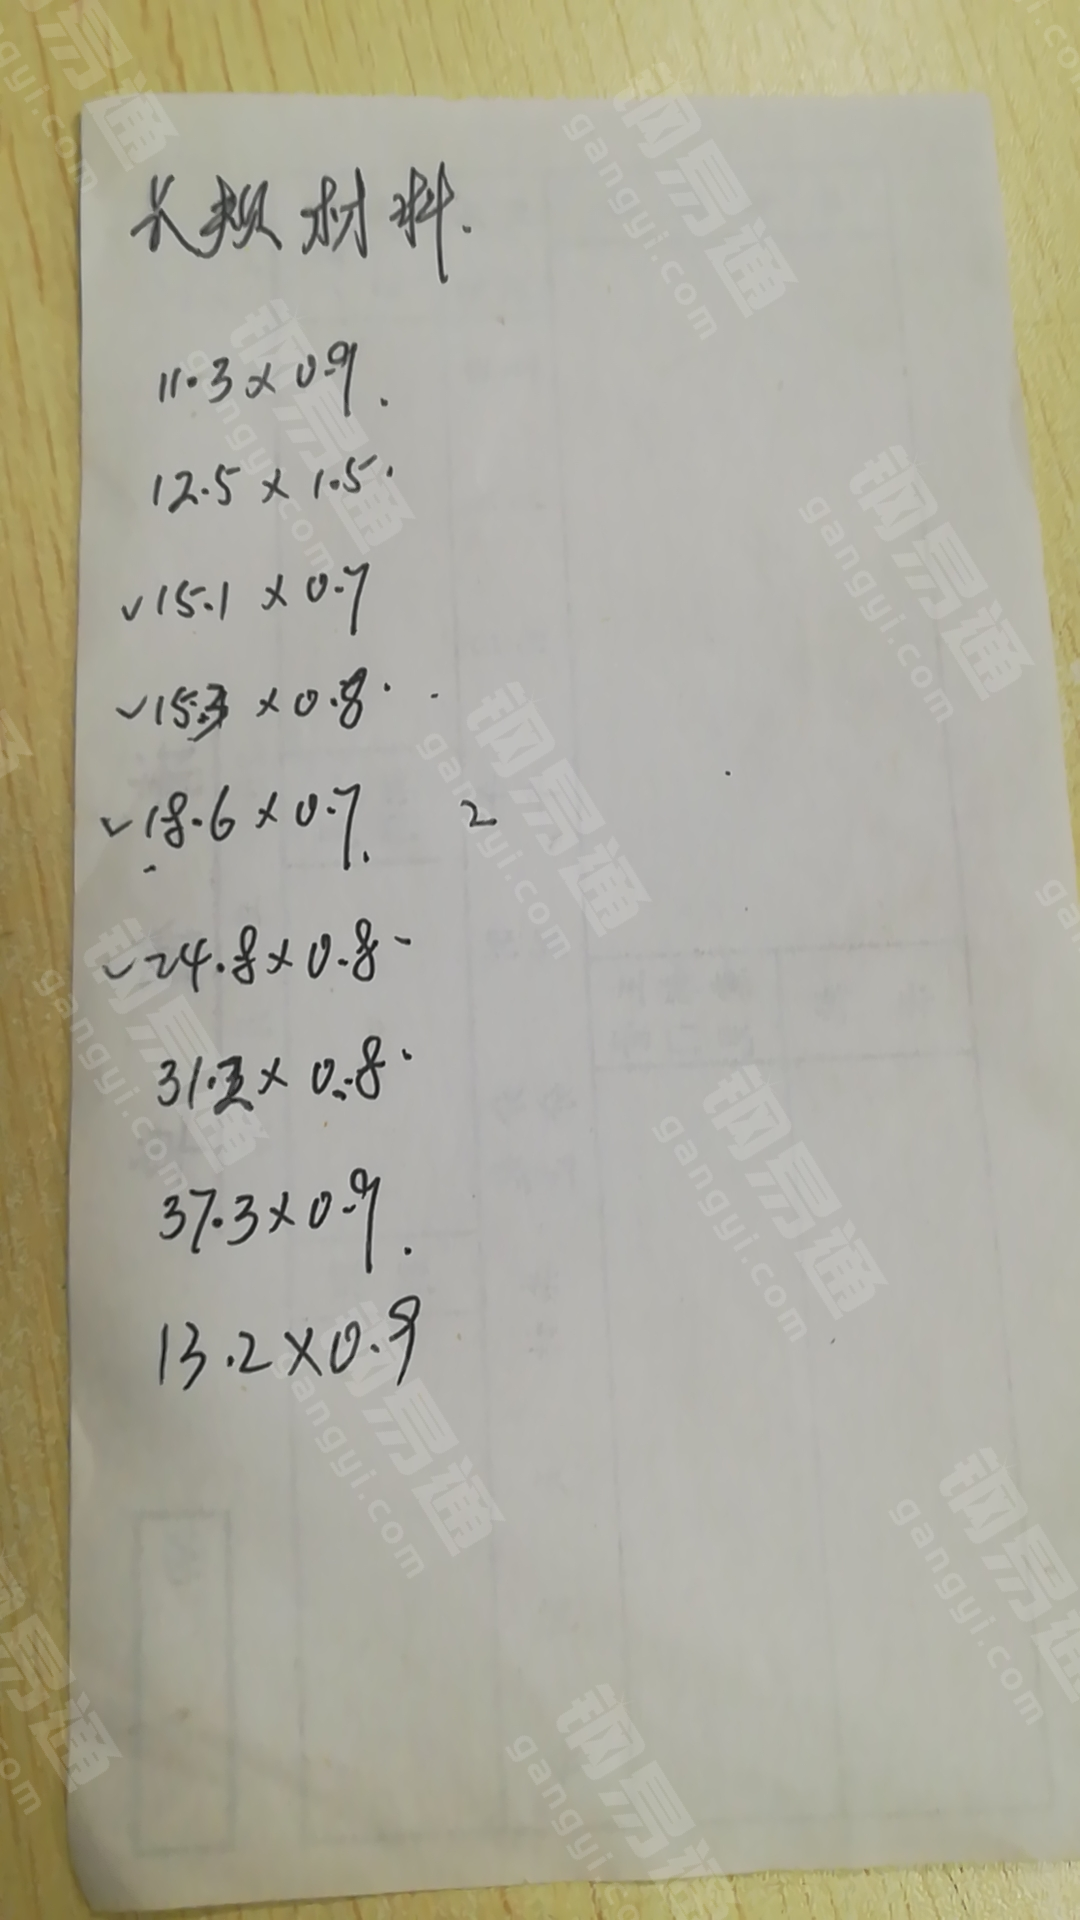 长期材料.
11.3×0.9.
12.5×1.5.
✓15.1×0.7
✓15.3×0.8.
✓18.6×0.7. 2
✓24.8×0.8-
31.2×0.8.
37.3×0.9.
13.2×0.9
钢易通
gangyi.com